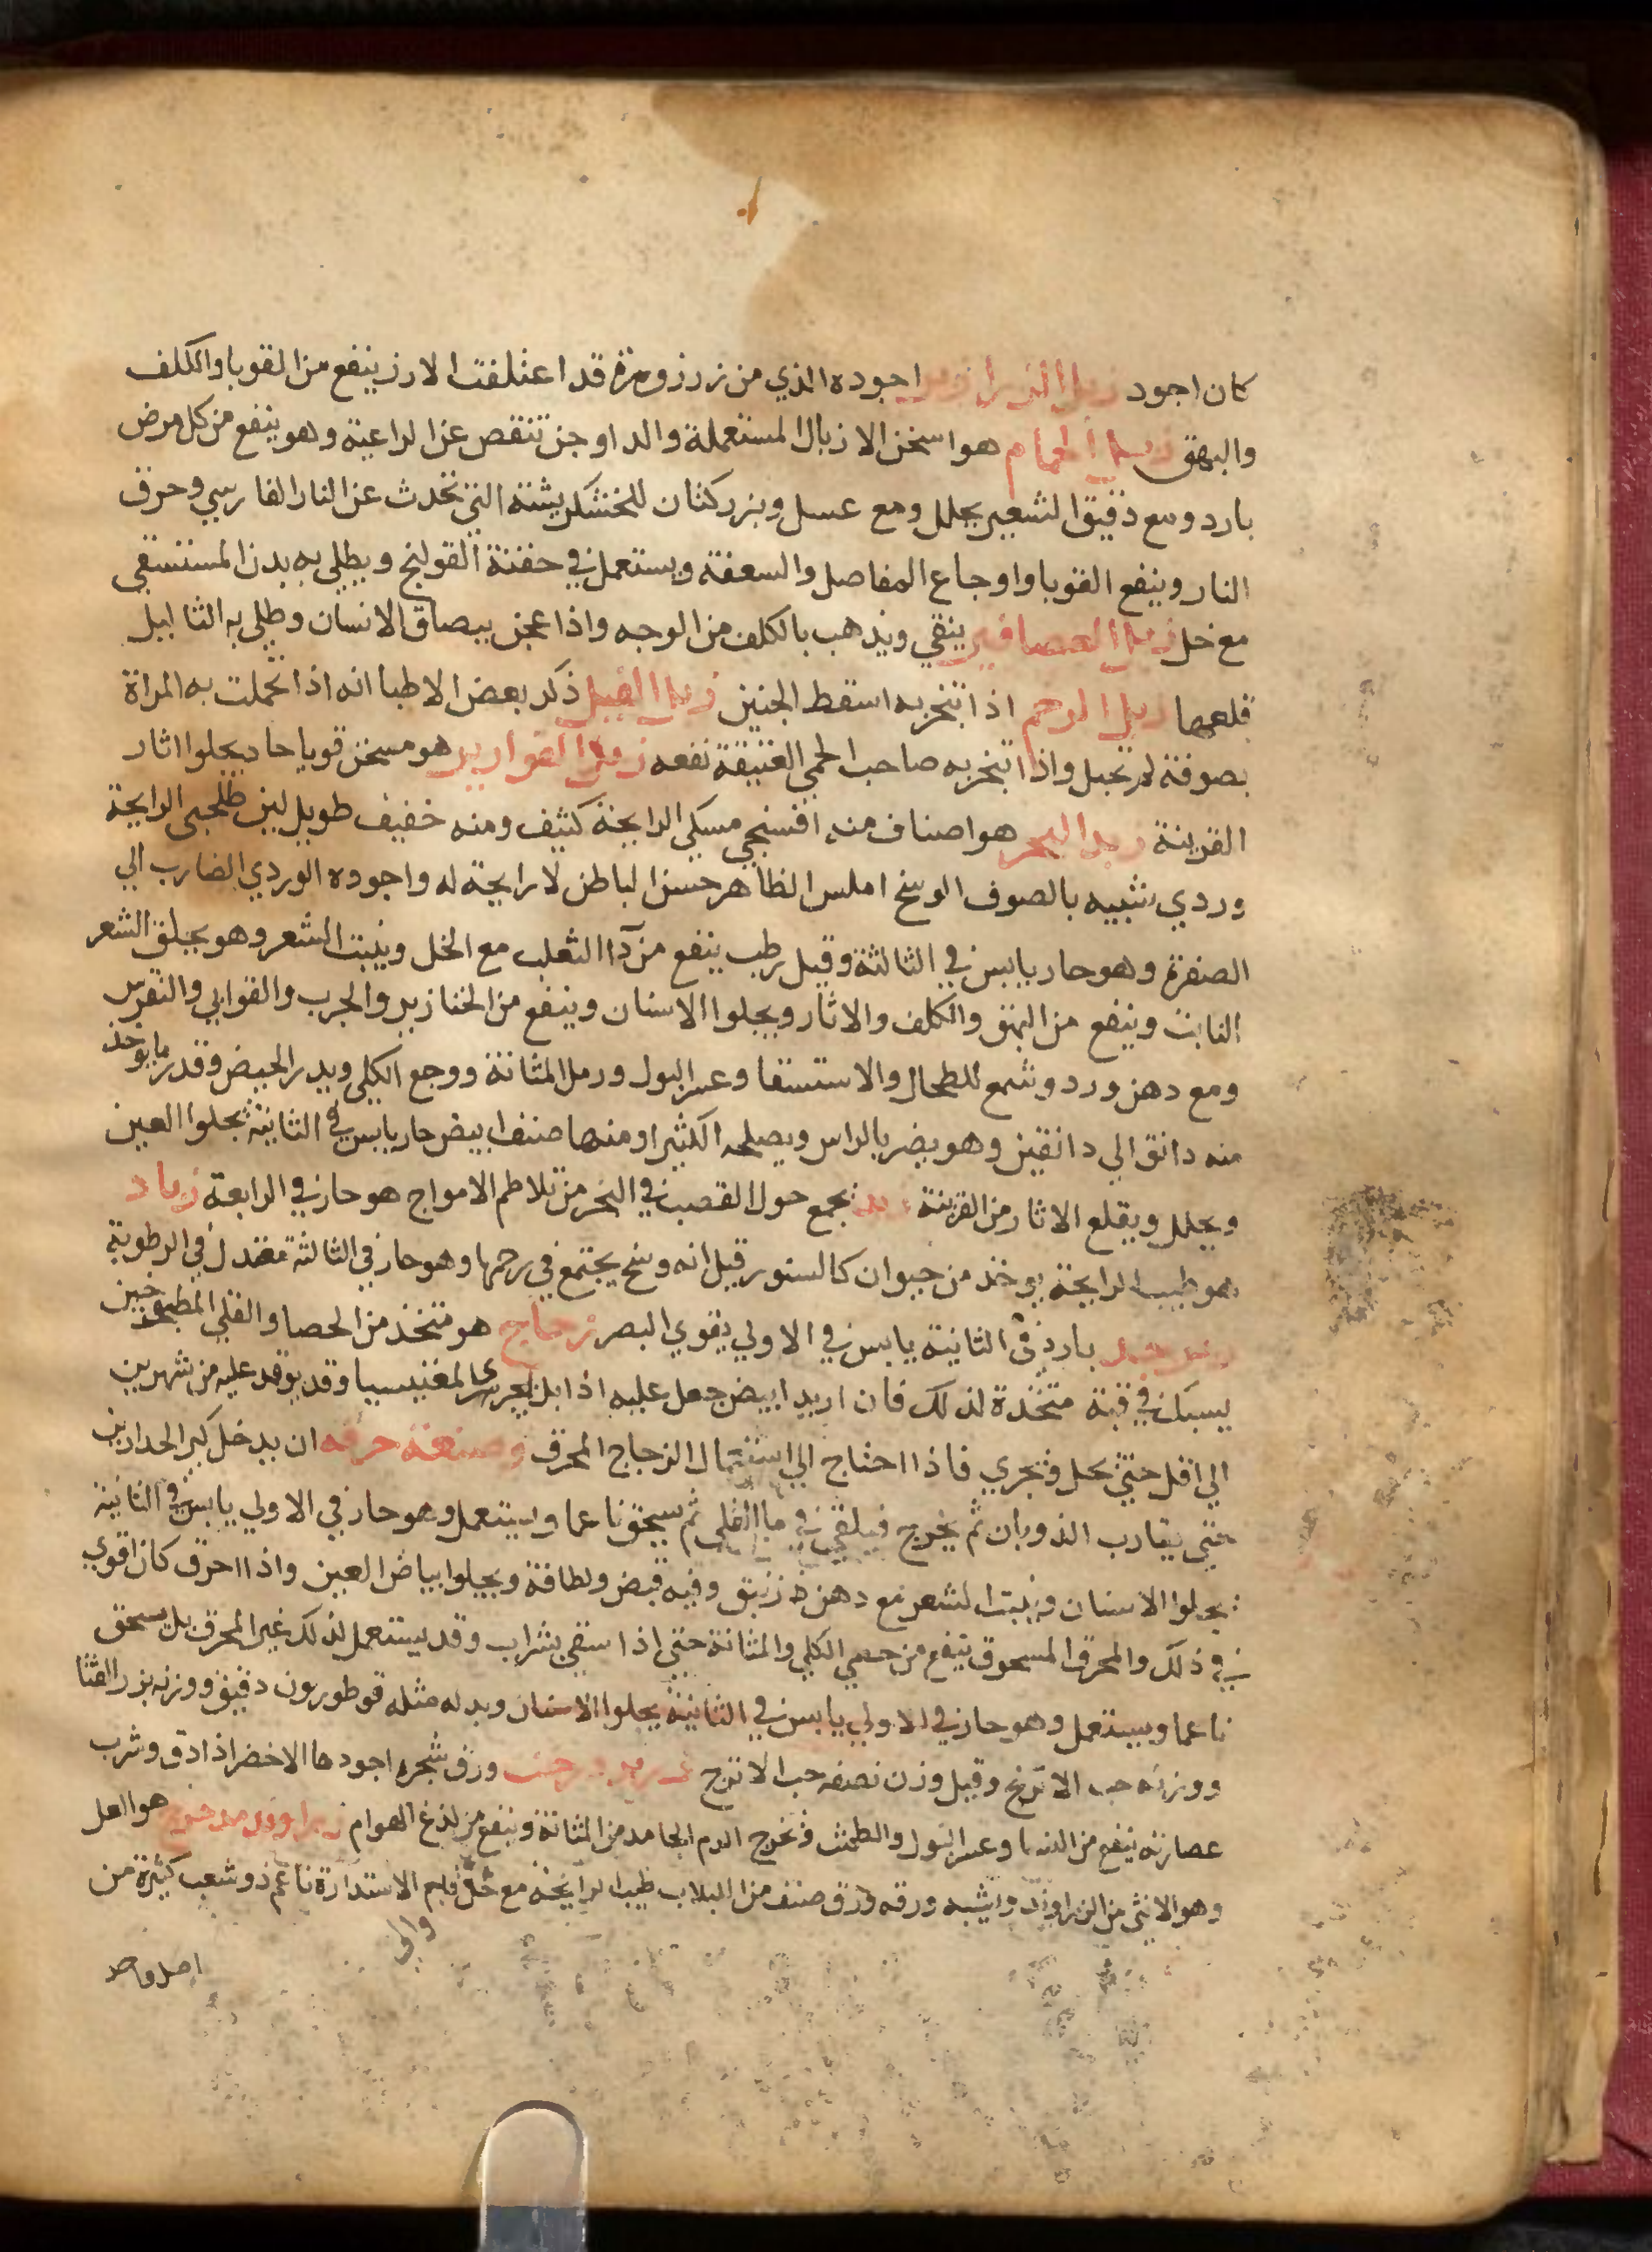 كان اجود زبل الزرازير اجوده الذي من زرزوره قد اعتلفت الارز ينفع من القوبا والكلف
والبهق زبل الحمام هو اسخن الازبال المستعملة والدواجن تنقص عن الراعية وهو ينفع من كل مرض
بارد ومع دقيق الشعير يحلل ومع عسل وبزر كتان للخشكريشة التي تحدث عن النار الفارسي وحرق
النار وينفع القوبا واوجاع المفاصل والسعفة ويستعمل في حقنة القولنج ويطلي به بدن المستسقي
مع خل زبل العصافير ينقي ويذهب بالكلف من الوجه واذا عجن ببصاق الانسان وطلي به الثاليل
قلعها زبل الرخم اذا تبخر به اسقط الجنين زبل الفيل ذكر بعض الاطبا انه اذا تحملت به المراة
بصوفة لم تحبل واذا تبخر به صاحب الحمي العتيقة نفعه زبد القوارير هو مسخن قويا حاد يجلوا اثار
القرينة زبد البحر هو اصناف منه اقسنجي مسكي الرايحة كثيف ومنه خفيف طويل لين طحلبي الرايحة
وردي شبيه بالصوف الوسخ املس الظاهر حسن الباطن لا رايحة له واجوده الوردي الضارب الي
الصفرة وهو حار يابس في الثالثة وقيل رطب ينفع من دا الثعلب مع الخل وينبت الشعر وهو يحلق الشعر
النابت وينفع من البهق والكلف والاثار ويجلوا الاسنان وينفع من الخنازير والجرب والقوابي والنقرس
ومع دهن ورد وشمع للطحال والاستسقا وعسر البول ورمل المثانة ووجع الكلي ويدر الحيض وقدر ما يوخذ
منه دانق الي دانقين وهو يضر بالراس ويصلحه الكثيرا ومنها صنف ابيض حار يابس في الثانية يجلوا العين
ويحلل ويقلع الاثار من القرينة يجمع حول القصب في البحر من تلاطم الامواج هو حار في الرابعة زباد
هو طيب الرايحة يوخذ من حيوان كالسنور قيل انه وسخ يجتمع في رحمها وهو حار في الثالثة معتدل في الرطوبة
زبرجد بارد في الثانية يابس في الاولي يقوي البصر زجاج هو متخذ من الحصا والقلي المطبوخين
يسبك في قبة متخذة لذلك فان اريد ابيض جعل عليه اذا المغنيسيا وقد يوقد عليه من شهرين
الي اقل حتي يحل فيجري فاذا احتاج الي استعمال الزجاج المحرق وصنعة حرقه ان يدخل كير الحدادين
حتي يقارب الذوبان ثم يخرج فيلقي في ما القلي ثم يسحق ناعما ويستعمل وهو حار في الاولي يابس في الثانية
يجلوا الاسنان وينبت الشعر مع دهن زنبق وفيه قبض ولطافة ويجلوا بياض العين واذا احرق كان اقوي
في ذلك والمحرق المسحوق ينفع من حصي الكلي والمثانة حتي اذا سقي بشراب وقد يستعمل لذلك غير المحرق بل يسحق
ناعما ويستعمل وهو حار في الاولي يابس في الثانية يجلوا الاسنان وبدله مثله قوطوريون دقيق ووزنه بزر القثا
ووزنه حب الاترنج وقيل وزن نصفه حب الاترج ورق شجره اجودها الاخضر اذا دق وشرب
عصارته ينفع من الربا وعسر البول والطمث ويخرج الدم الجامد من المثانة وينفع من لذغ الهوام زراوند مدحرج
وهو الانثي من الزراوند ويشبه ورقه ورق صنف من اللبلاب طيب الرايحة مع الاستدارة ناعم ذو شعب كثيرة من
اصل واحد